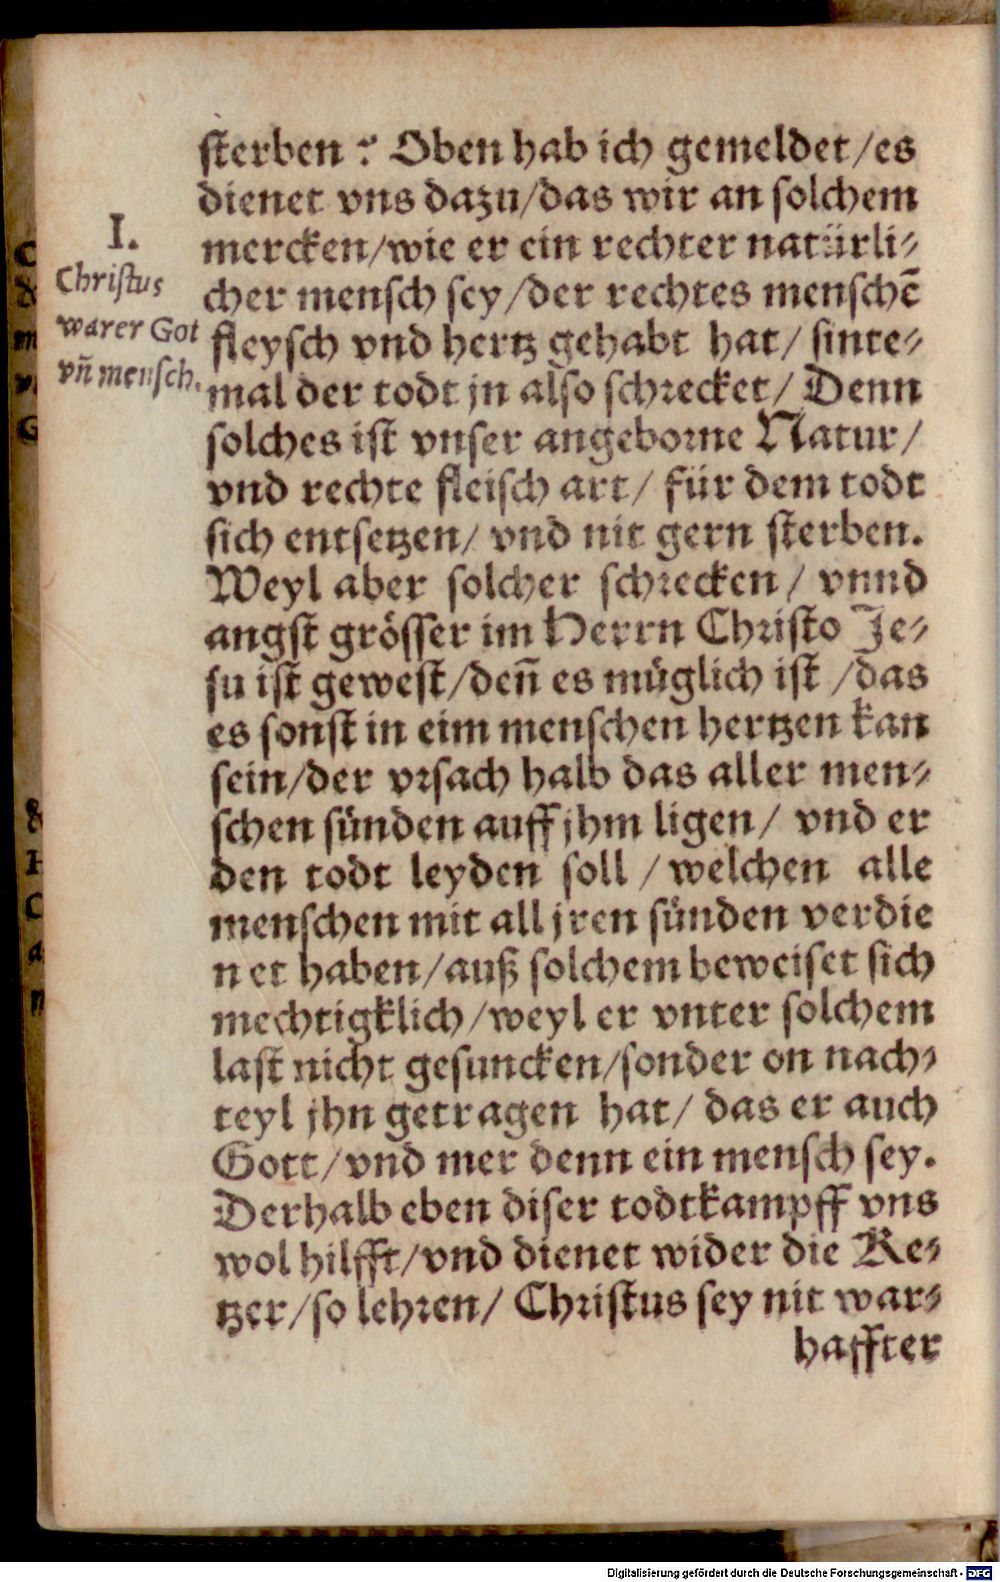 I.
Christus
warer Got
vñ mensch.
sterben? Oben hab ich gemeldet/es
dienet vns dazu/das wir an solchem
mercken/wie er ein rechter natürli⸗
cher mensch sey/der rechtes menschē
fleysch vnd hertz gehabt hat/ sinte⸗
mal der todt jn also schrecket/ Denn
solches ist vnser angeborne Natur/
vnd rechte fleisch art/ für dem todt
sich entsetzen/ vnd nit gern sterben.
Weyl aber solcher schrecken/ vnnd
angst grösser im Herrn Christo Je⸗
su ist gewest/deñ es müglich ist /das
es sonst in eim menschen hertzen kan
sein/der vrsach halb das aller men⸗
schen sünden auff jhm ligen/ vnd er
den todt leyden soll / welchen alle
menschen mit all jren sünden verdie
net haben/auß solchem beweiset sich
mechtigklich/weyl er vnter solchem
last nicht gesuncken/sonder on nach⸗
teyl jhn getragen hat/ das er auch
Gott/vnd mer denn ein mensch sey.
Derhalb eben diser todtkampff vns
wol hilfft/vnd dienet wider die Ke⸗
tzer/so lehren/ Christus sey nit war⸗
haffter
Digitalisierung gefördert durch die Deutsche Forschungsgemeinschaft - DFG